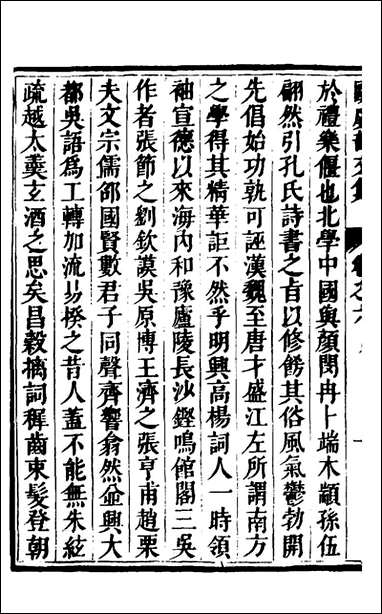 於禮樂偃也北學中國與顏閔冉卜端木顓孫伍
翩然引孔氏詩書之旨以修餝其俗風氣鬱勃開
先倡始功孰可誣漢魏至唐才盛江左所謂南方
之學得其精華詎不然乎明興高楊詞人一時領
袖宣德以來海內和豫廬陵長沙鏗鳴館閣三吳
作者張節之劉欽謨吳原博王濟之張亨甫趙栗
夫文宗儒邵國賢數君子同聲齊響翕然企興大
都吳語爲工轉加流易揆之昔人蓋不能無朱絃
疏越太羹玄酒之思矣昌榖摛詞穉齒束髮登朝